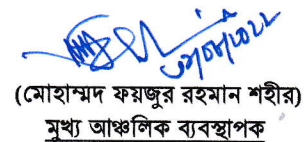 ০৮/০৮/২০২২
(মোহাম্মদ ফয়জুর রহমান শহীর)
মুখ্য আঞ্চলিক ব্যবস্থাপক